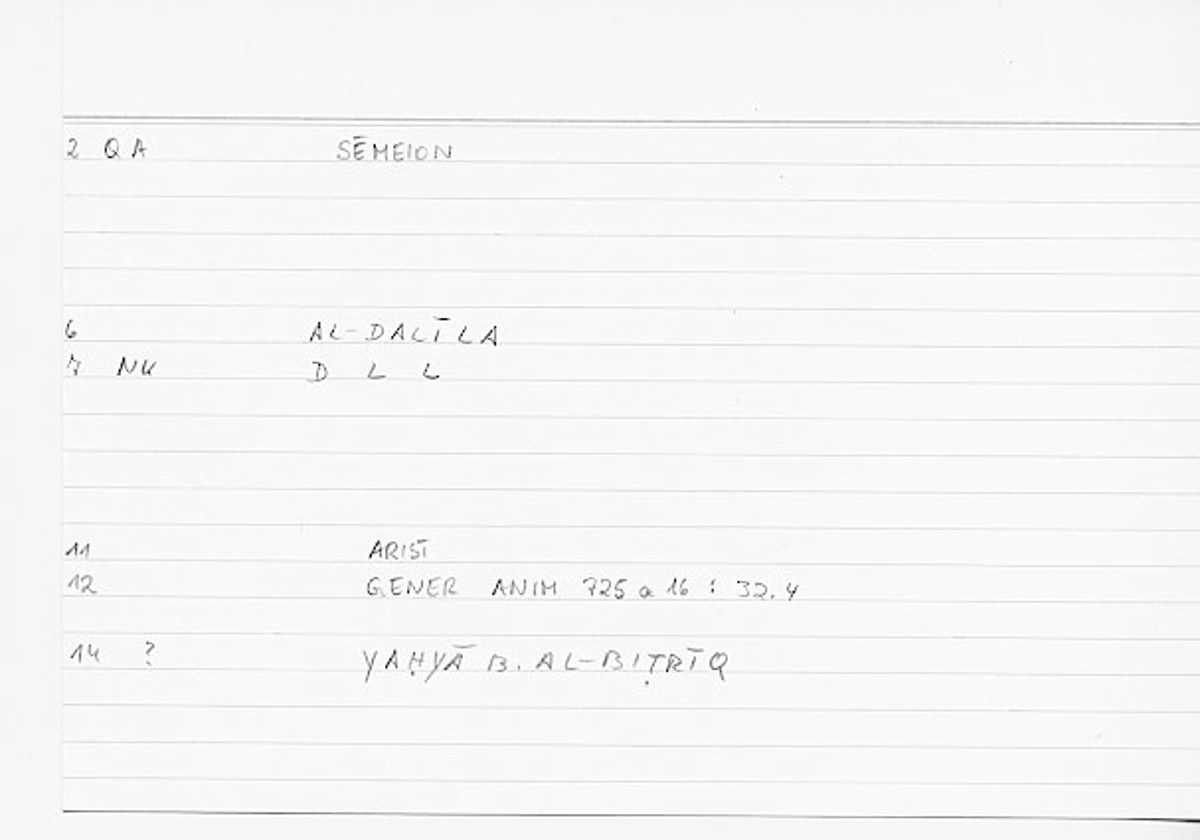 2 QA SĒMEION
6 AL-DALĪLA
7 NK D L L
11 ARIST
12 GENER ANIM 725 a 16 : 32.4
14 ? YAḤYĀ B. AL-BIṬRĪQ